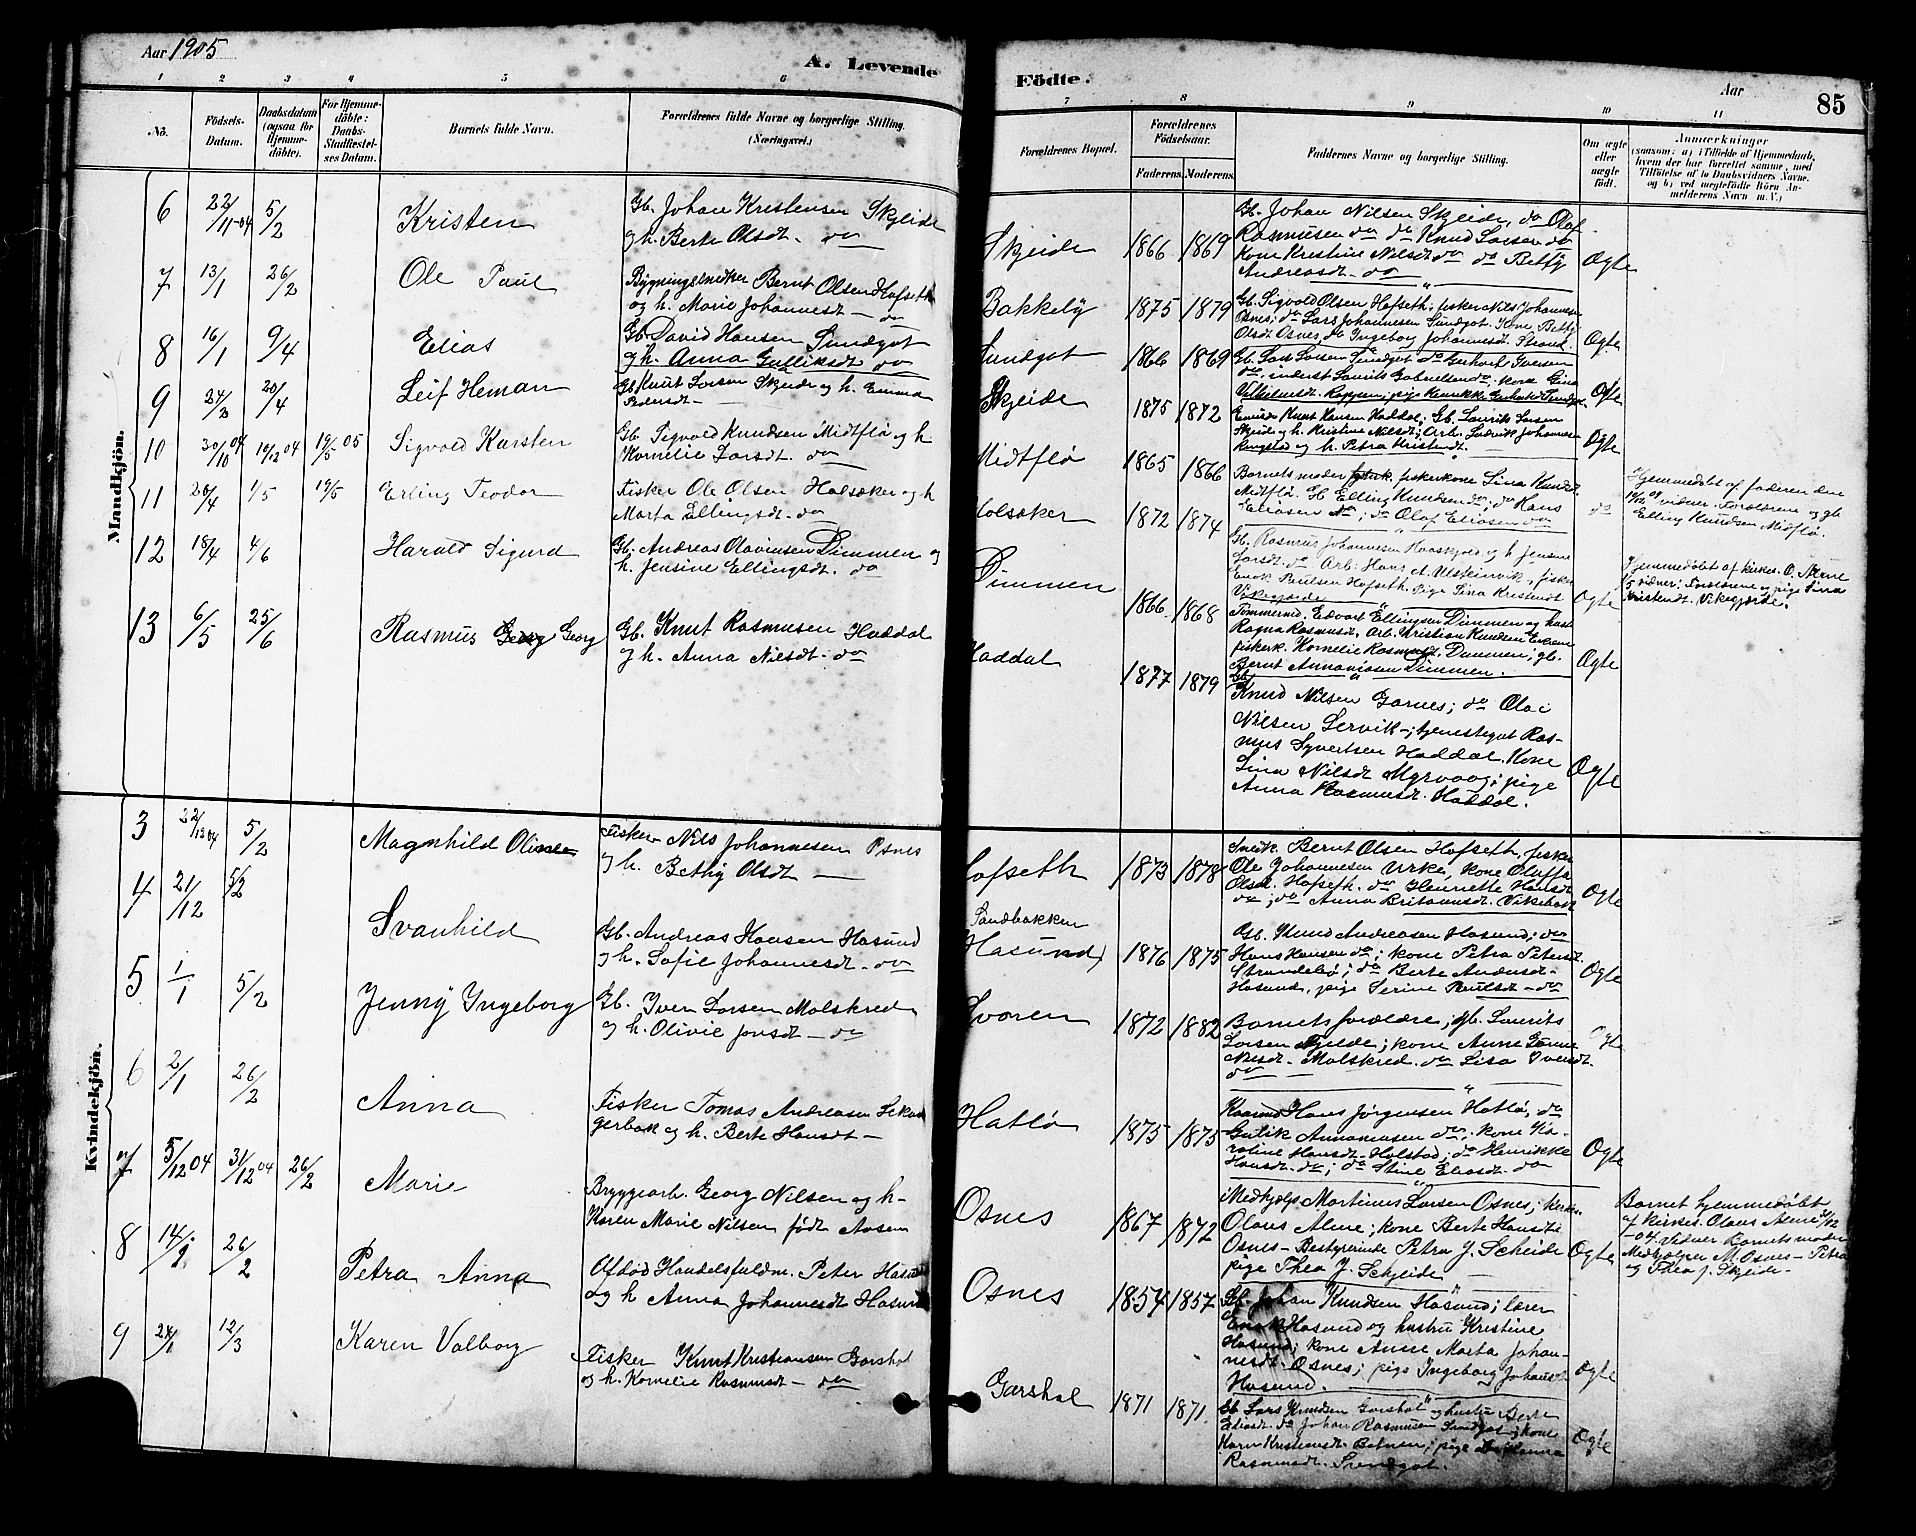 Aar 1905
A. Levende
1 2 3 4 5 6
No.
Födsels-
Datum.
Daabsdatum
(ogsaa for
Hjemme-
döbte).
For Hjemme-
döbte:
Daabs-
Stadfæstel-
ses Datum.
Barnets fulde Navn.
Forældrenes fulde Navne og borgerlige Stilling.
(Næringsvei.)
Mandkjön.
6 22/11-04 5/2 Kristen
Gb. Johan Kristensen Skjeide
og h. Berte Olsdt. do
7 13/1 26/2 Ole Paul
Bygningssnedker Bernt Olsen Hofseth
og h. Marie Johannesdt - do
8 16/1 9/4 Elias
Gb. David Hansen Sundgot
og h. Anna Gulliksdt do
9 24/2 20/4 Leif Heman
Gb. Knut Larsen Skjeide og h. Emma
Pedersdt -
10 30/10 04 10/12 04 19/5 05 Sigvald Karsten
Gb. Sigvald Knudsen Midtflø og h
Kornelie Larsdt. do
11 26/4 1/5 19/5 Erling Teodor
Fisker Ole Olsen Halsaker og h
Marta Ellingsdt. do
12 18/4 4/6 Harald Sigurd
Gb. Andreas Olavinsen Dimmen og
h. Jensine Ellingsdt. do
13 6/5 25/6 Rasmus Georg Georg
Gb. Knut Rasmusen Haddal
og h. Anna Nilsdt. do
Kvindekjön.
3 22/12 04 5/2 Magnhild Oline
Fisker Nils Johannesen Osnes
og h. Bethy Olsdt -
4 21/12 5/2 Svanhild
Gb. Andreas Hansen Hasund
og h. Sofie Johannesdt - do
5 1/1 5/2 Jenny Ingeborg
Gb. Iver Larsen Molskred
og h. Olivie Jonsdt - do
6 2/1 26/2 Anna
Fisker Tomas Andreasen
gerbak og h. Berte Hansdt -
7 5/12 04 31/12 04 26/2 Marie
Bryggearb. Georg Nilsen og h-
Karen Marie Nilsen født Aasen
8 14/1 26/2 Petra Anna
Afdød Handelsfuldm. Peter Hasund
og h Anna Johannesdt Hasund
9 24/1 12/3 Karen Valborg
Fisker Knut Kristiansen Garshol
og h. Kornelie Rasmusdt - do
Födte.
Aar
85
7 8 9 10 11
Forældrenes Bopæl.
Forældrenes
Födselsaar.
Faderens. Moderens.
Faddernes Navne og borgerlige Stilling.
Om ægte
eller
uægte
født.
Anmærkninger
(saasom: a) i Tilfælde af Hjemmedaab,
hvem der har forrettet samme, med
Tilföielse af to Daabsvidners Navne,
og b) ved uægtefödte Börn An-
melderens Navn m. V.)
Skjeide 1866 1869
Gb. Johan Nilsen Skjeide, do Olaf
Rasmusen do do Knud Larsen do
Kone Kristine Nilsdt do do Betty
Andreasdt - do
Ægte
Bakkely 1875 1879
Gb. Sigvald Olsen Hofseth; fisker Nils Johannesen
Osnes; do Lars Johannesen Sundgot. Kone Betty
Olsdt Osnes, do Ingeborg Johannesdt Strand.
Ægte
Sundgot 1866 1869
Gb. Lars Larsen Sundgot do Gerhard Iversen
do, inderst Laurits Gabrielsen do, kone Gina
Vilhelmsdt. pige Henrikke Sundgot
Ægte
Skjeide 1875 1872
Knut Hansen Haddal; Gb. Larsen
Skjeide og h. Kristine Nilsdt; Arb. Johannesen
og h. Petra Kristensdt.
Ægte
Midtflø 1865 1866
Barnets moder, fiskerkone Lina Knudsdt
Midtflø. Gb Elling Knudsen do; do Hans
Eliasen do; do Olaf Eliasen do
do
Hjemmedøbt af faderen den
10/12 04 vidner: Forældrene og gb.
Elling Knudsen Midtflø.
Holsaker 1872 1874
Gb. Rasmus Johannesen Haaskjold og h Jensine
Larsdt. do Arb. Hans A. Ulsteinvik, fisker
Enok Paulsen Hofseth. Pige Lina Kristensdt
Vikegjerde
Ægte
Hjemmedøbt af kirkes. O. Alme
1/5 vidner: Forældrene og pige Lina
Kristensdt. Vikegjerde.
Dimmen 1866 1868
Tømmermd. Edvart Ellingsen Dimmen og hust
Ragna Rasmusdt, Arb. Kristian Knudsen
fiskerk. Kornelie Rasmusdt. Dimmen; gb.
Bernt Annaniasen Dimmen.
Ægte
Haddal 1877 1879
Gb. Knud Nilsen Garnes; do Olai
Nilsen Lervik -; tjenestegut Ras-
mus Syvertsen Haddal. Kone
Lina Nilsdt Myrvaag; pige
Anna Rasmusdt. Haddal.
Ægte
Hofseth 1873 1878
Snedk. Bernt Olsen Hofseth, fisker
Ole Johannesen Urke, kone Oluffa
Olsdt. Hofseth. do Henriette Hansdt
do; do Anna Vikebakk
Ægte
Sandbakken
(Hasund) 1876 1875
Gb. Knud Andreasen Hasund; do
Hans Hansen do; kone Petra Petersdt.
Strandebø; do Berte Andersdt-
Hasund, pige Serine Knutsdt - do
Ægte
Svoren 1872 1882
Barnets forældre; gb. Laurits
Larsen Skjeide; kone Anne
Nilsdt - Molskred. do Lisa Iversdt.
do -
Ægte
Hatlø 1875 1875
Hans Jørgensen Hatlø, do
Gutik Annaniasen do; kone Ka-
roline Hansdt - Holstad; do Henrikke
Hansdt. do; do Stine Eliasdt. do
Ægte
Osnes 1867 1872
Medhjælp. Martinus Larsen Osnes; kirkes.
Olaus Alme; kone Berte Hansdt.
Osnes - Bestyrerinde Petra J. Scheide
pige Thea J. Schjeide -
Ægte
Barnet hjemmedøbt
af kirkes. Olaus Alme 31/12
-04 Vidner Barnets moder
Medhjælper M. Osnes - Petra
og Thea J. Skjeide -
Osnes 1854 1857
Gb. Johan Knudsen Hasund; lærer
Enok Hasund og hustru Kristine
Hasund; kone Anne Marta Johan-
nesdt - Osnes; pige Ingeborg Johansdt
Hasund.
Ægte
Garshol 1871 1871
Gb Lars Knudsen Garshol og hustru Berte
Eliasdt. do Johan Rasmusen Sundgot; kone
Karen Kristiansdt. Botnen; pige Johanna
Rasmusdt. Sundgot.
Ægte